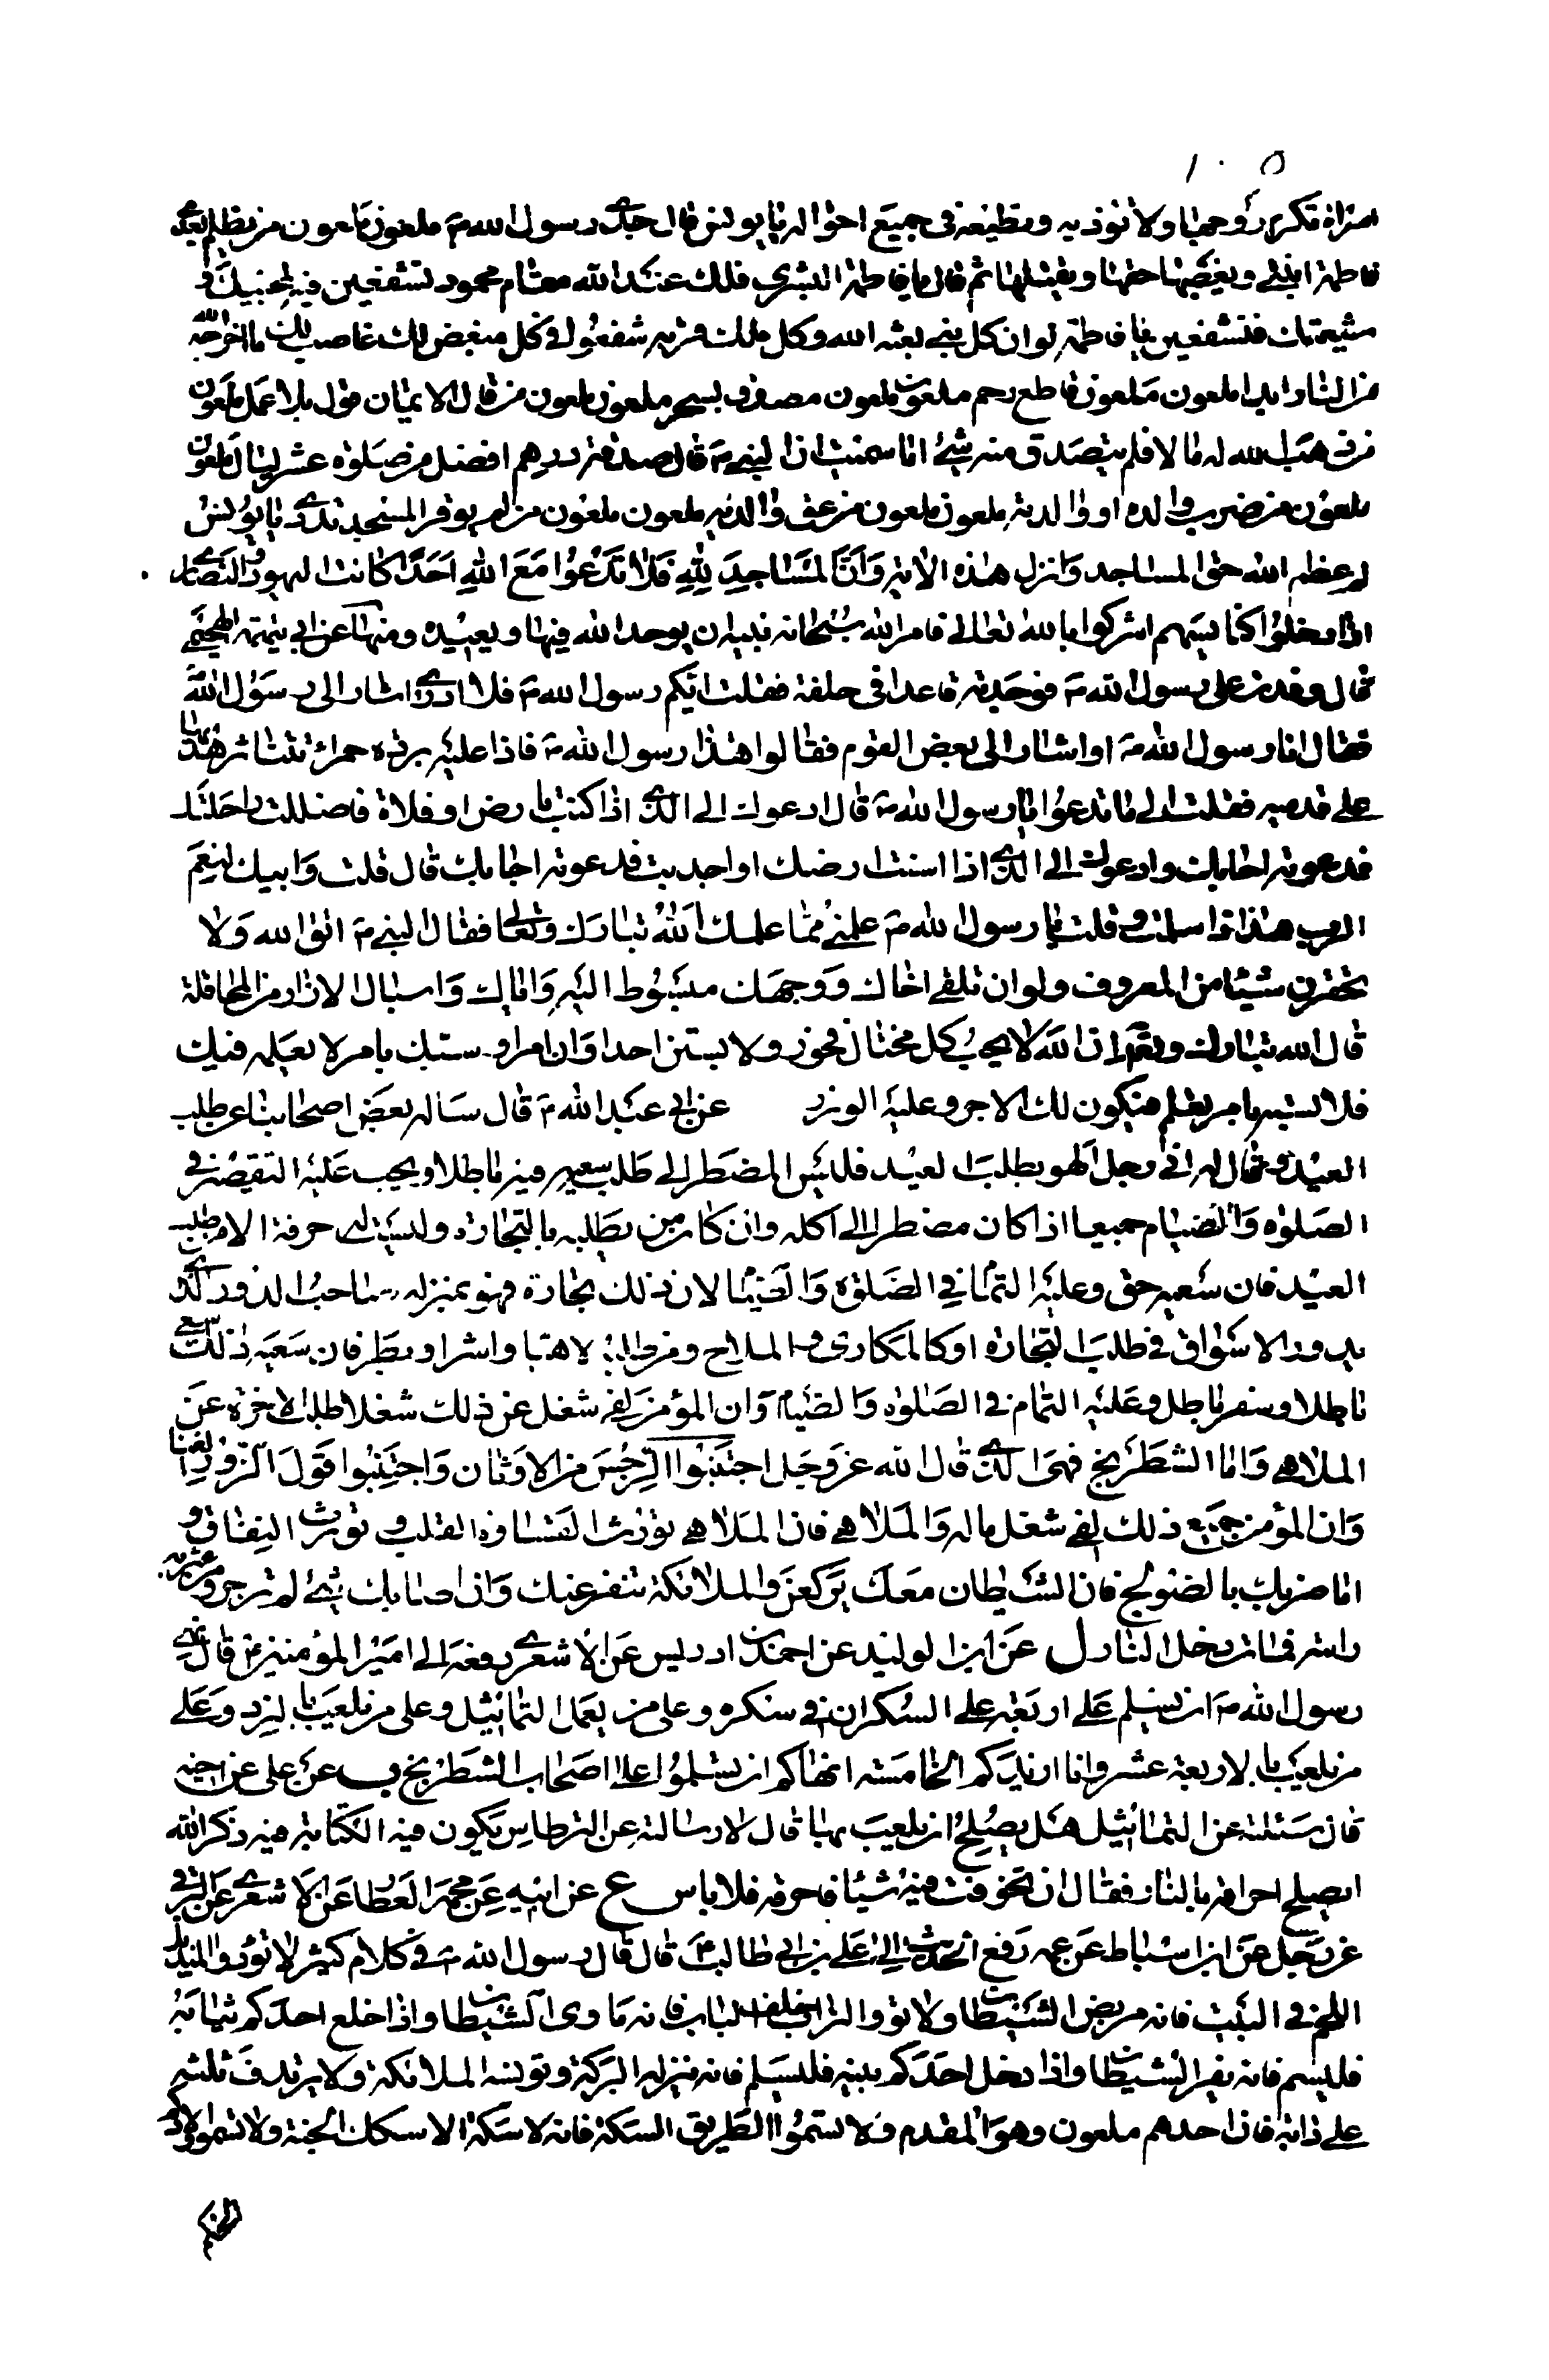 ١٠٥
امراة تكرم زوجها ولا تؤذيه وتطيعه في جميع احواله يا يونس قال جدي رسول الله ص ملعون ملعون من يظلم بعدي
فاطمة ابنتي ويغصبها حقها ويقتلها ثم قال يا فاطمة البشري فلك عند الله مقام محمود تشفعين فيه لمحبيك و
شيعتك فتشفعين يا فاطمة لو ان كل نبي بعثه الله وكل ملك قربه شفعوا في كل مبغض لك غاصب لك ما اخرجه الله
من النار ابدا ملعون ملعون قاطع رحم ملعون ملعون مصدق بسحر ملعون ملعون من قال الايمان قول بلا عمل ملعون
من وهب الله له مالا فلم يتصدق منه بشئ اما سمعت ان النبي ص قال صدقة درهم افضل من صلوة عشر ليال ملعون
ملعون من ضرب والده او والدته ملعون ملعون من عق والديه ملعون ملعون من لم يوقر المسجد تدري يا يونس
لم عظم الله حق المساجد وانزل هذه الاية وَاَنَّ المَسَاجِدَ لِلّهِ فَلَا تَدْعُوا مَعَ اللهِ اَحَدًا كانت اليهود والنصارى
اذا دخلوا كنايسهم اشركوا بالله تعالى فامر الله سبحانه نبيه ان يوحد الله فيها ويعبده ومنها عن ابي تميمة الهجيمي
قال وفدت على رسول الله ص فوجدته قاعدا في حلقة فقلت ايكم رسول الله ص فلا ادري اشار الى رسول الله
فقال انا رسول الله ص او اشار الى بعض القوم فقالوا هذا رسول الله ص فاذا عليه بردة حمراء تتناثر هدبها
على قدميه فقلت الى ما تدعوا يا رسول الله ص قال ادعوك الى الذي اذا كنت بارض او فلاة فاضللت راحلتك
فدعوته اجابك وادعوك الى الذي اذا اسنت ارضك او اجدبت فدعوته اجابك قال قلت وابيك لنعم
الرب هذا فاسلمت وقلت يا رسول الله ص علمني مما علمك الله تبارك وتعالى فقال النبي ص اتق الله ولا
تحقرن شيئا من المعروف ولو ان تلقى اخاك ووجهك مبسوط اليه واياك واسبال الازار من المخافلة
قال الله تبارك وتعالى ان الله لا يحب كل مختال فخور ولا تسبن احدا وان امرء سبك بامر لا يعلمه فيك
فلا تسبه بامر تعلمه فيكون لك الاجر وعليه الوزر عن ابي عبد الله ع قال ساله بعض اصحابنا عن طلب
الصيد وقال له اني رجل الهو بطلب الصيد فليس المضطر الى طلب سعيه فيه باطلا ويجب عليه التقصير في
الصلوة والصيام جميعا اذا كان مضطرا الى اكله وان كان ممن يطلبه بالتجارة وليست له حرفة الا من طلب
الصيد فان سعيه حق وعليه التمام في الصلوة والصيام لان ذلك تجارة فهو بمنزلة صاحب الدور الذي
يدور الاسواق في طلب التجارة او كالمكاري والملاح ومن طلبه لاهيا واشرا وبطرا فان سعيه ذلك سعى
باطلا وسفر باطل وعليه التمام في الصلوة والصيام وان المؤمن لفي شغل عن ذلك شغله طلب الاخرة عن
الملاهي واما الشطرنج فهي الذي قال الله عز وجل اجتنبوا الرجس من الاوثان واجتنبوا قول الزور الغنا
وان المؤمن جميع ذلك لفي شغل ماله والملاهي فان الملاهي تورث القساوة القلب وتورث النفاق و
اما ضربك بالصولج فان الشيطان معك يركض والملائكة تنفر عنك وان اصابك شئ لم توجر ومن عثر به
دابته فمات دخل النار ل عن ابن الوليد عن احمد بن ادريس عن الاشعري رفعه الى امير المؤمنين ع قال نهى
رسول الله ص ان نسلم على اربعة على السكران في سكره وعلى من يعمل التماثيل وعلى من يلعب بالنرد وعلى
من يلعب بالاربعة عشر وانا ازيدكم الخامسة انهاكم ان تسلموا على اصحاب الشطرنج ب عن علي عن اخيه
قال سئلته عن التماثيل هل يصلح ان يلعب بها قال لا وسالته عن القرطاس يكون فيه الكتابة فيه ذكر الله
ايصلح احراقه بالنار فقال ان تخوفت فيه شيئا فاحرقه فلا باس ع عن ابيه عن محمد العطار عن الاشعري عن البرقي
عن رجل عن ابن اسباط عن عمه رفع الحديث الى علي بن ابي طالب ع قال قال رسول الله ص في كلام كثير لا تؤووا منديل
اللحم في البيت فانه مربض الشيطان ولا تؤووا التراب خلف الباب فانه ماوى الشيطان واذا خلع احدكم ثيابه
فليسم فانه يفر الشيطان واذا دخل احدكم بيته فليسلم فانه ينزله البركة وتونسه الملائكة ولا يرتدف ثلثة
على دابة فان احدهم ملعون وهو المقدم ولا تسموا الطريق السكة فانه لا سكة الا سكك الجنة ولا تسموا اولادكم